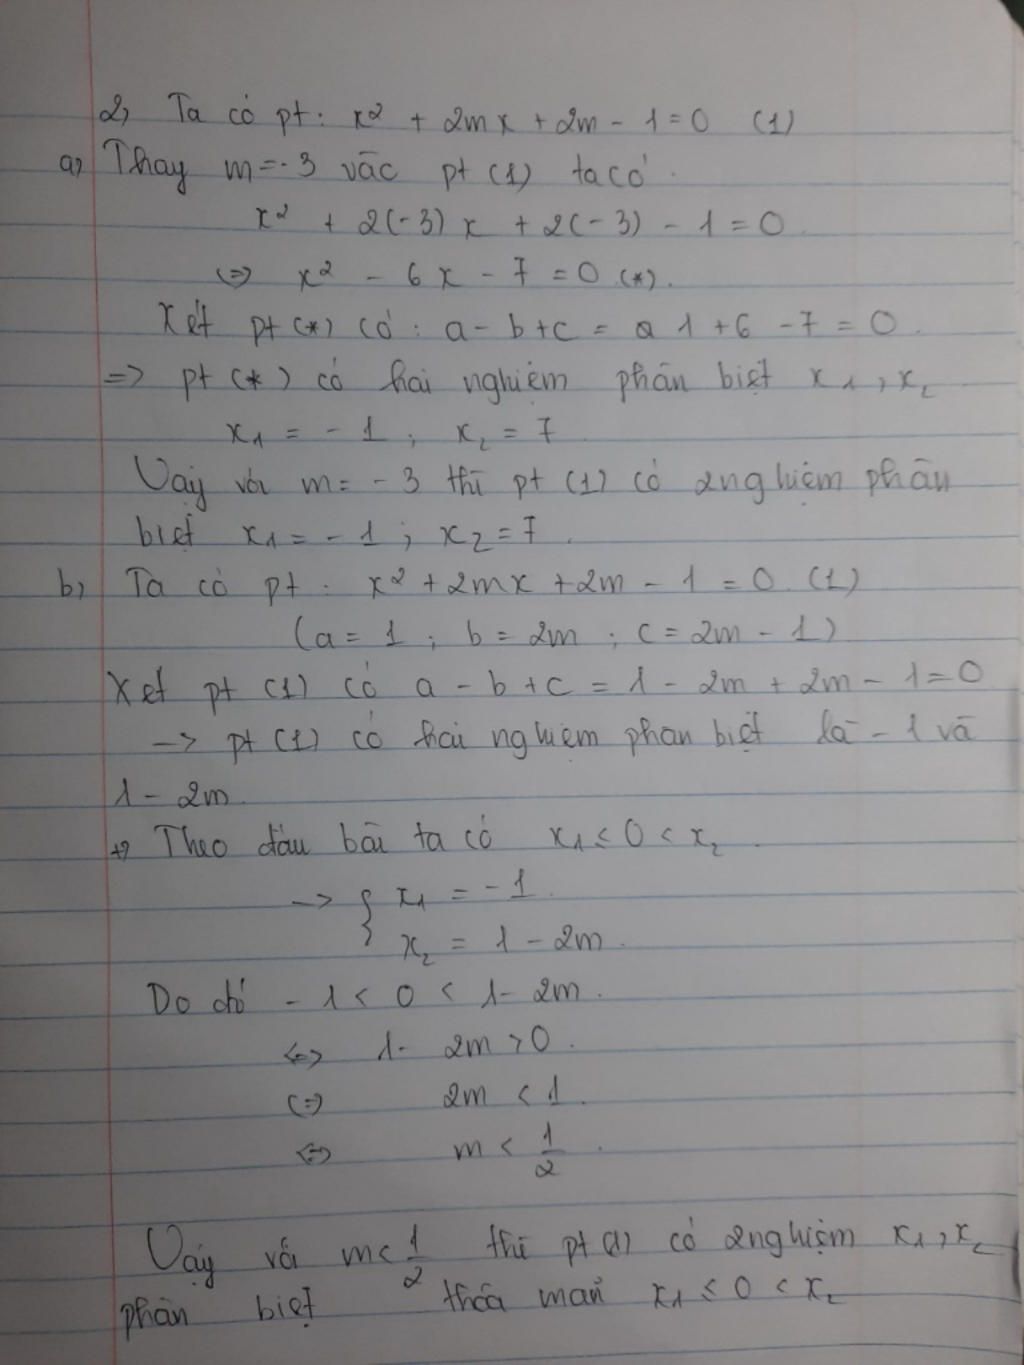 2, Ta có pt: x² + 2mx + 2m - 1 = 0 (1)
a, Thay m = -3 vào pt (1) ta có
x² + 2(-3)x + 2(-3) - 1 = 0
<=> x² - 6x - 7 = 0 (*).
Xét pt (*) có: a - b + c = a 1 + 6 - 7 = 0.
=> pt (*) có hai nghiệm phân biệt x₁, x₂
x₁ = -1; x₂ = 7
Vậy với m = -3 thì pt (1) có 2 nghiệm phân
biệt x₁ = -1; x₂ = 7.
b, Ta có pt: x² + 2mx + 2m - 1 = 0 (1)
(a = 1; b = 2m; c = 2m - 1)
Xét pt (1) có a - b + c = 1 - 2m + 2m - 1 = 0
-> pt (1) có hai nghiệm phân biệt là -1 và
1 - 2m
+, Theo đầu bài ta có x₁ ≤ 0 < x₂.
-> { x₁ = -1.
x₂ = 1 - 2m.
Do đó -1 < 0 < 1 - 2m.
<=> 1 - 2m > 0.
<=> 2m < 1.
<=> m < 1/2.
Vậy với m < 1/2 thì pt (1) có 2 nghiệm x₁, x₂
phân biệt thỏa mãn x₁ ≤ 0 < x₂